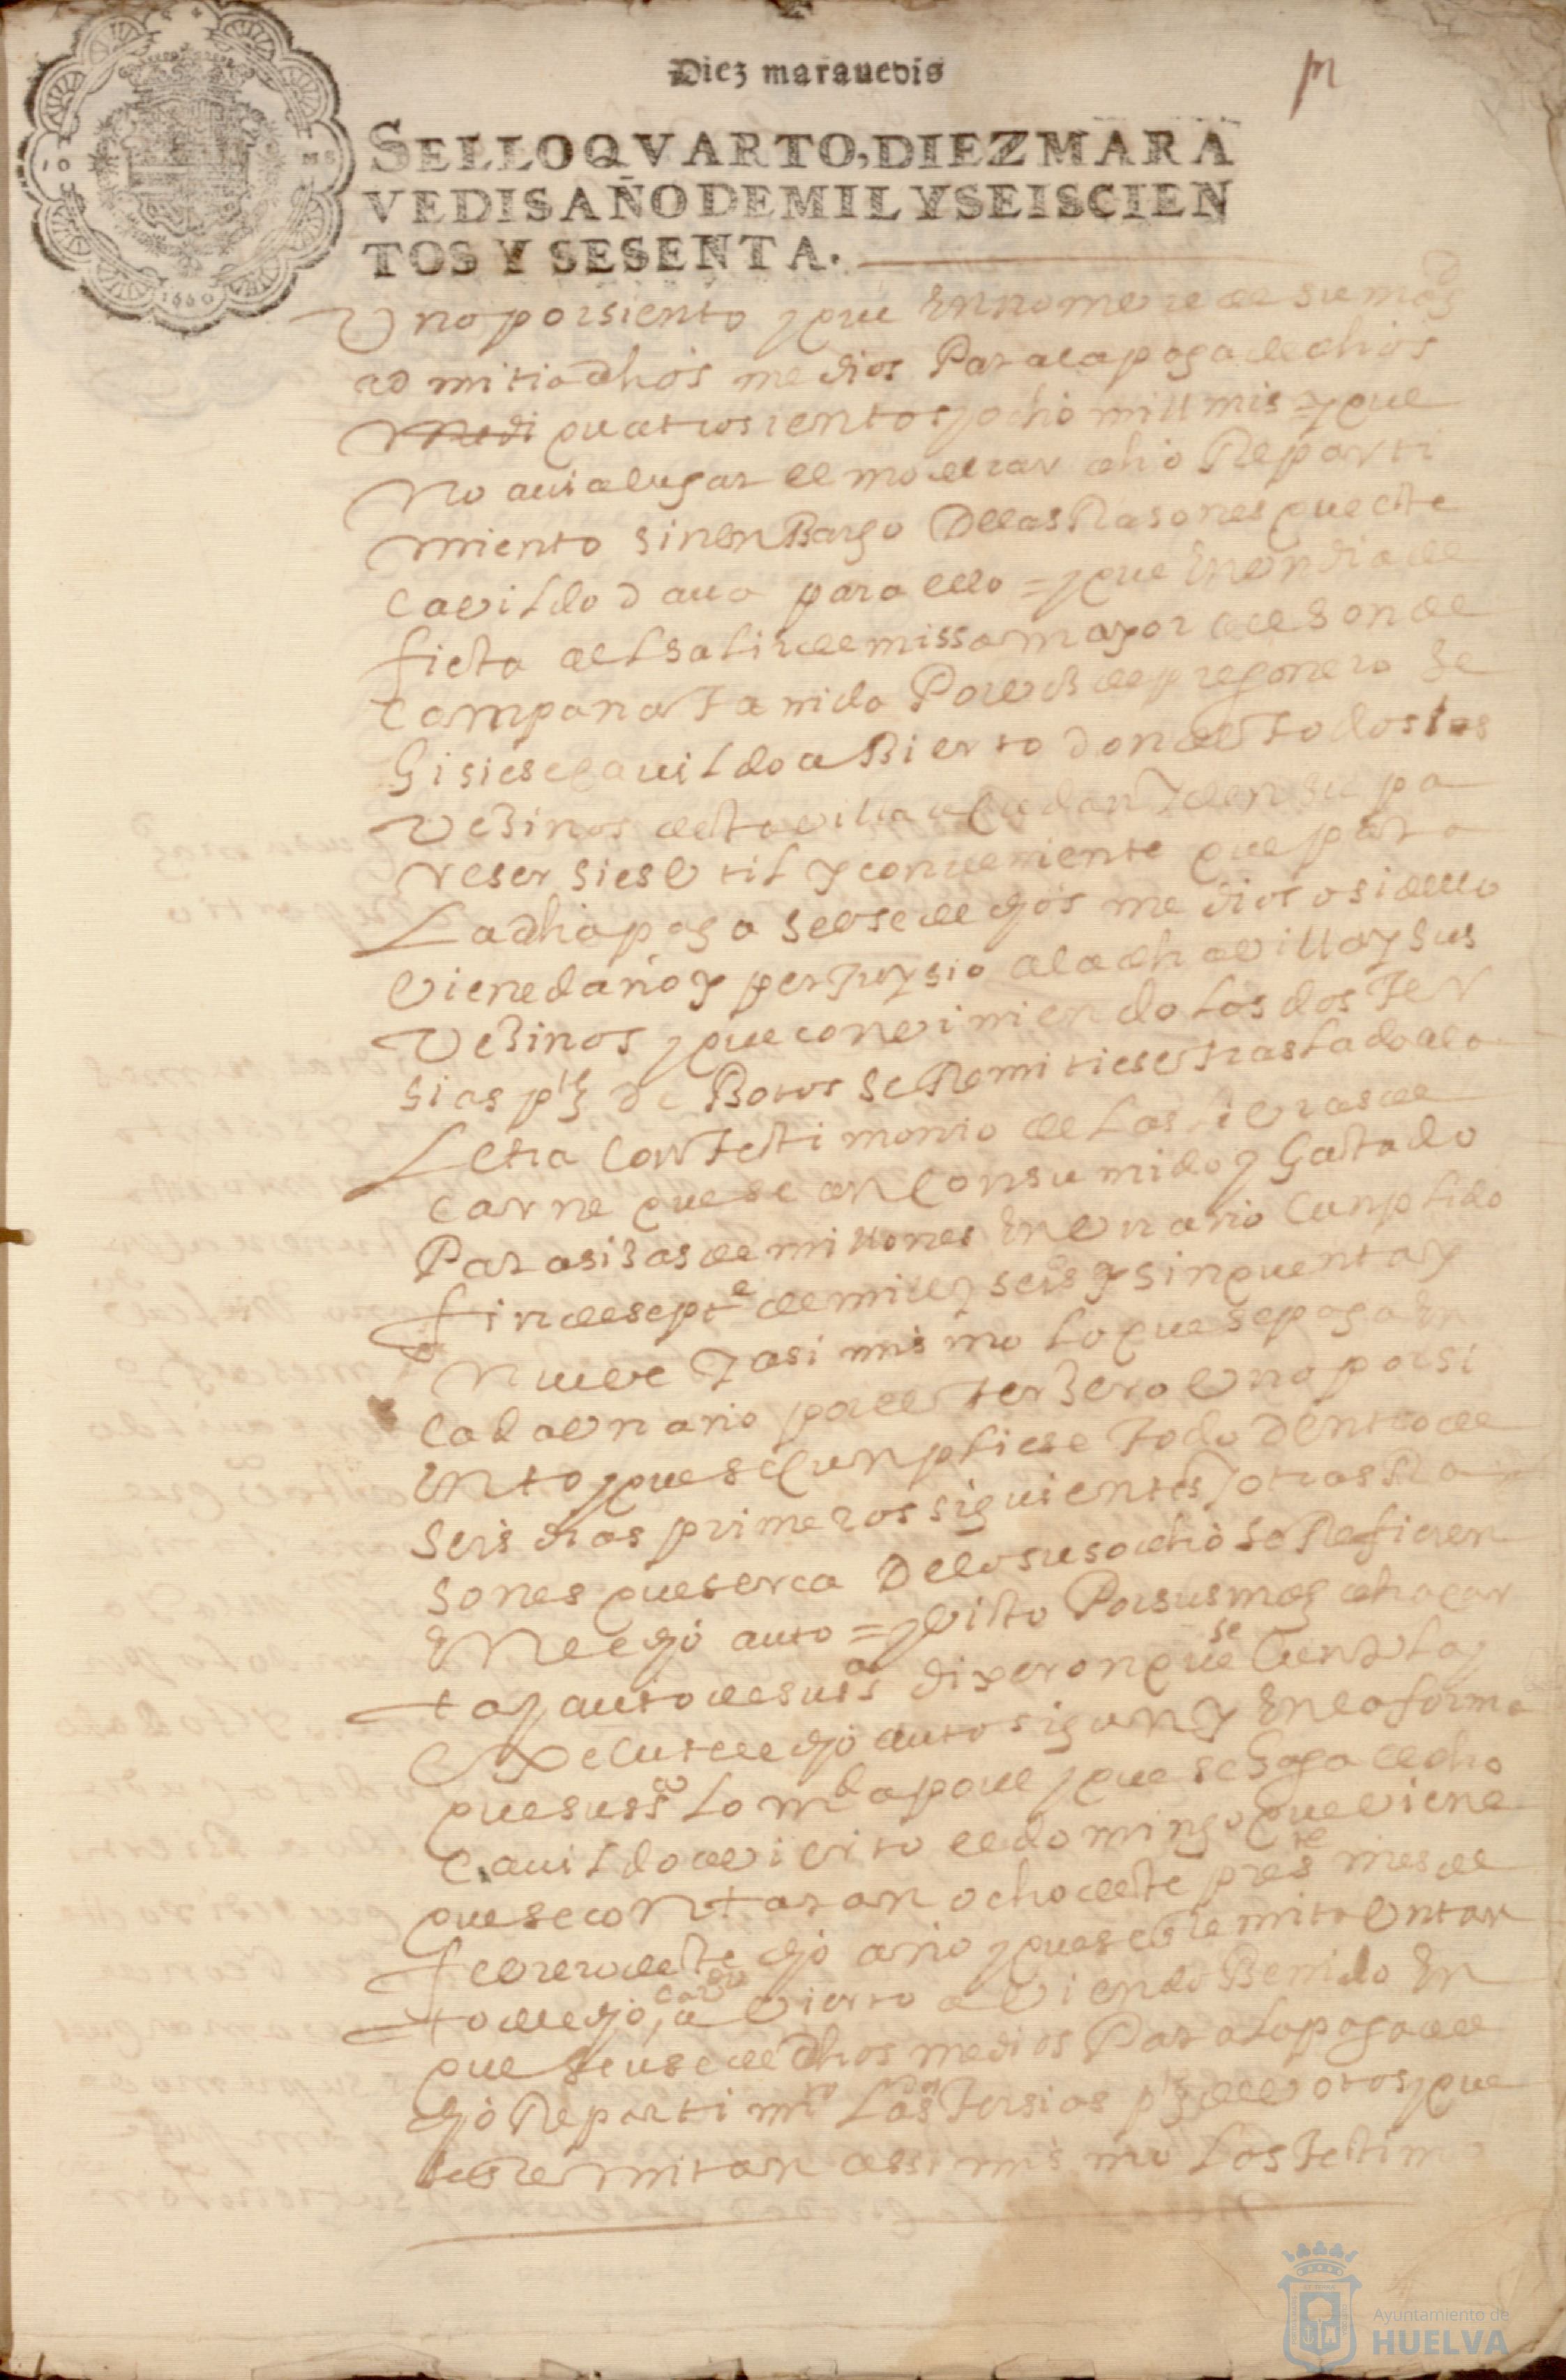 Diez marauedis
SELLO QVARTO, DIEZ MARA
VEDIS AÑO DE MIL Y SEISCIEN
TOS Y SESENTA.
10 MS
1660
Uno por siento y que En nombre de su magd
admitia dhos medios Para la paga de dhos
medi quatrosientos y ocho mill mrs y que
No auia lugar el moderar dho Reparti
miento sin enBargo De las Rasones que este
cavildo daua para ello = y que En un dia de
fiesta al salir de missa mayor a el son de
campana Tanida Por voz de pregonero se
hisiese cauildo aBierto donde todos los
vezinos desta villa acudan y den su pa
reser si es util y conueniente que para
La dha paga se use de dhos medios o si dello
viene daño y perjuysio a la dha villa y sus
Vezinos y que conviniendo las dos Ter
sias ptes de Botos se Remitiese traslado a la
Letra con Testimonio de las libras de
carne que se an consumido y gastado
Para sisas de millones En un año cunplido
fin de septe de mill y seisos y sinquenta y
Nueve Y asi mismo lo que se paga En
cada un año por el terzero uno por si
Ento y que se cunpliese todo Dentro de
seis dias primeros siguientes y otras Ra
sones que serca De lo susodho se Refieren
En el dho auto = y visto Por sus mds dha car
ta y auto de su sa dixeron que se cunpla y
Execute el dho auto sigun y En la forma
que su ssa lo mda por el y que se haga el dho
cauildo avierto el domingo que viene
que se contaran ocho deste preste mes de
febrero deste dho año y que se le remita un tan
to del dho cavdo avierto aviendo Benido En
que se use de dhos medios Para la paga del
dho Repartimto Las dos Tersias ptes de votos y que
se le remitan assi mismo los Testim
Ayuntamiento de
HUELVA